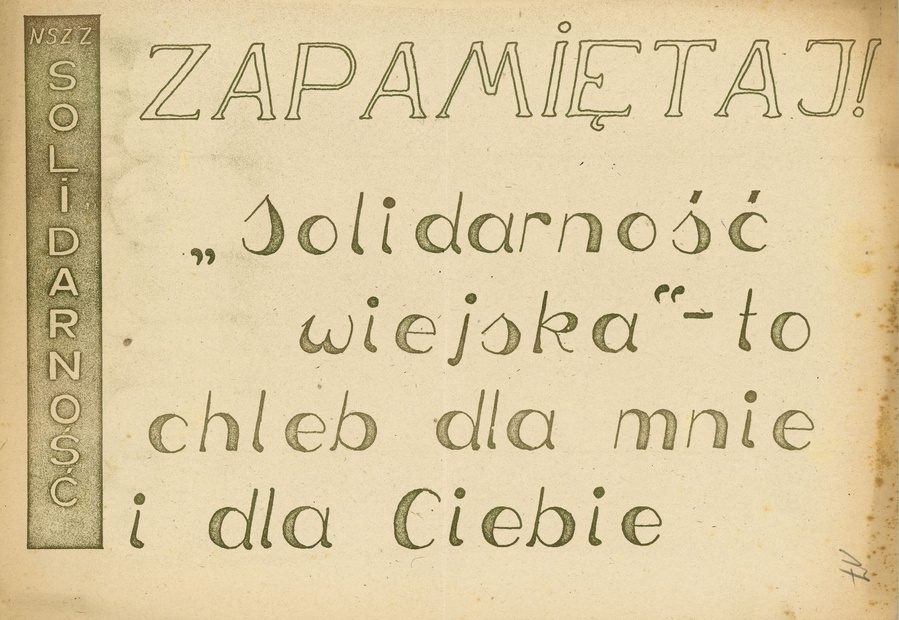 NSZZ
SOLiDARNOŚĆ
ZAPAMiĘTAJ!
„Solidarność
wiejska“ - to
chleb dla mnie
i dla Ciebie